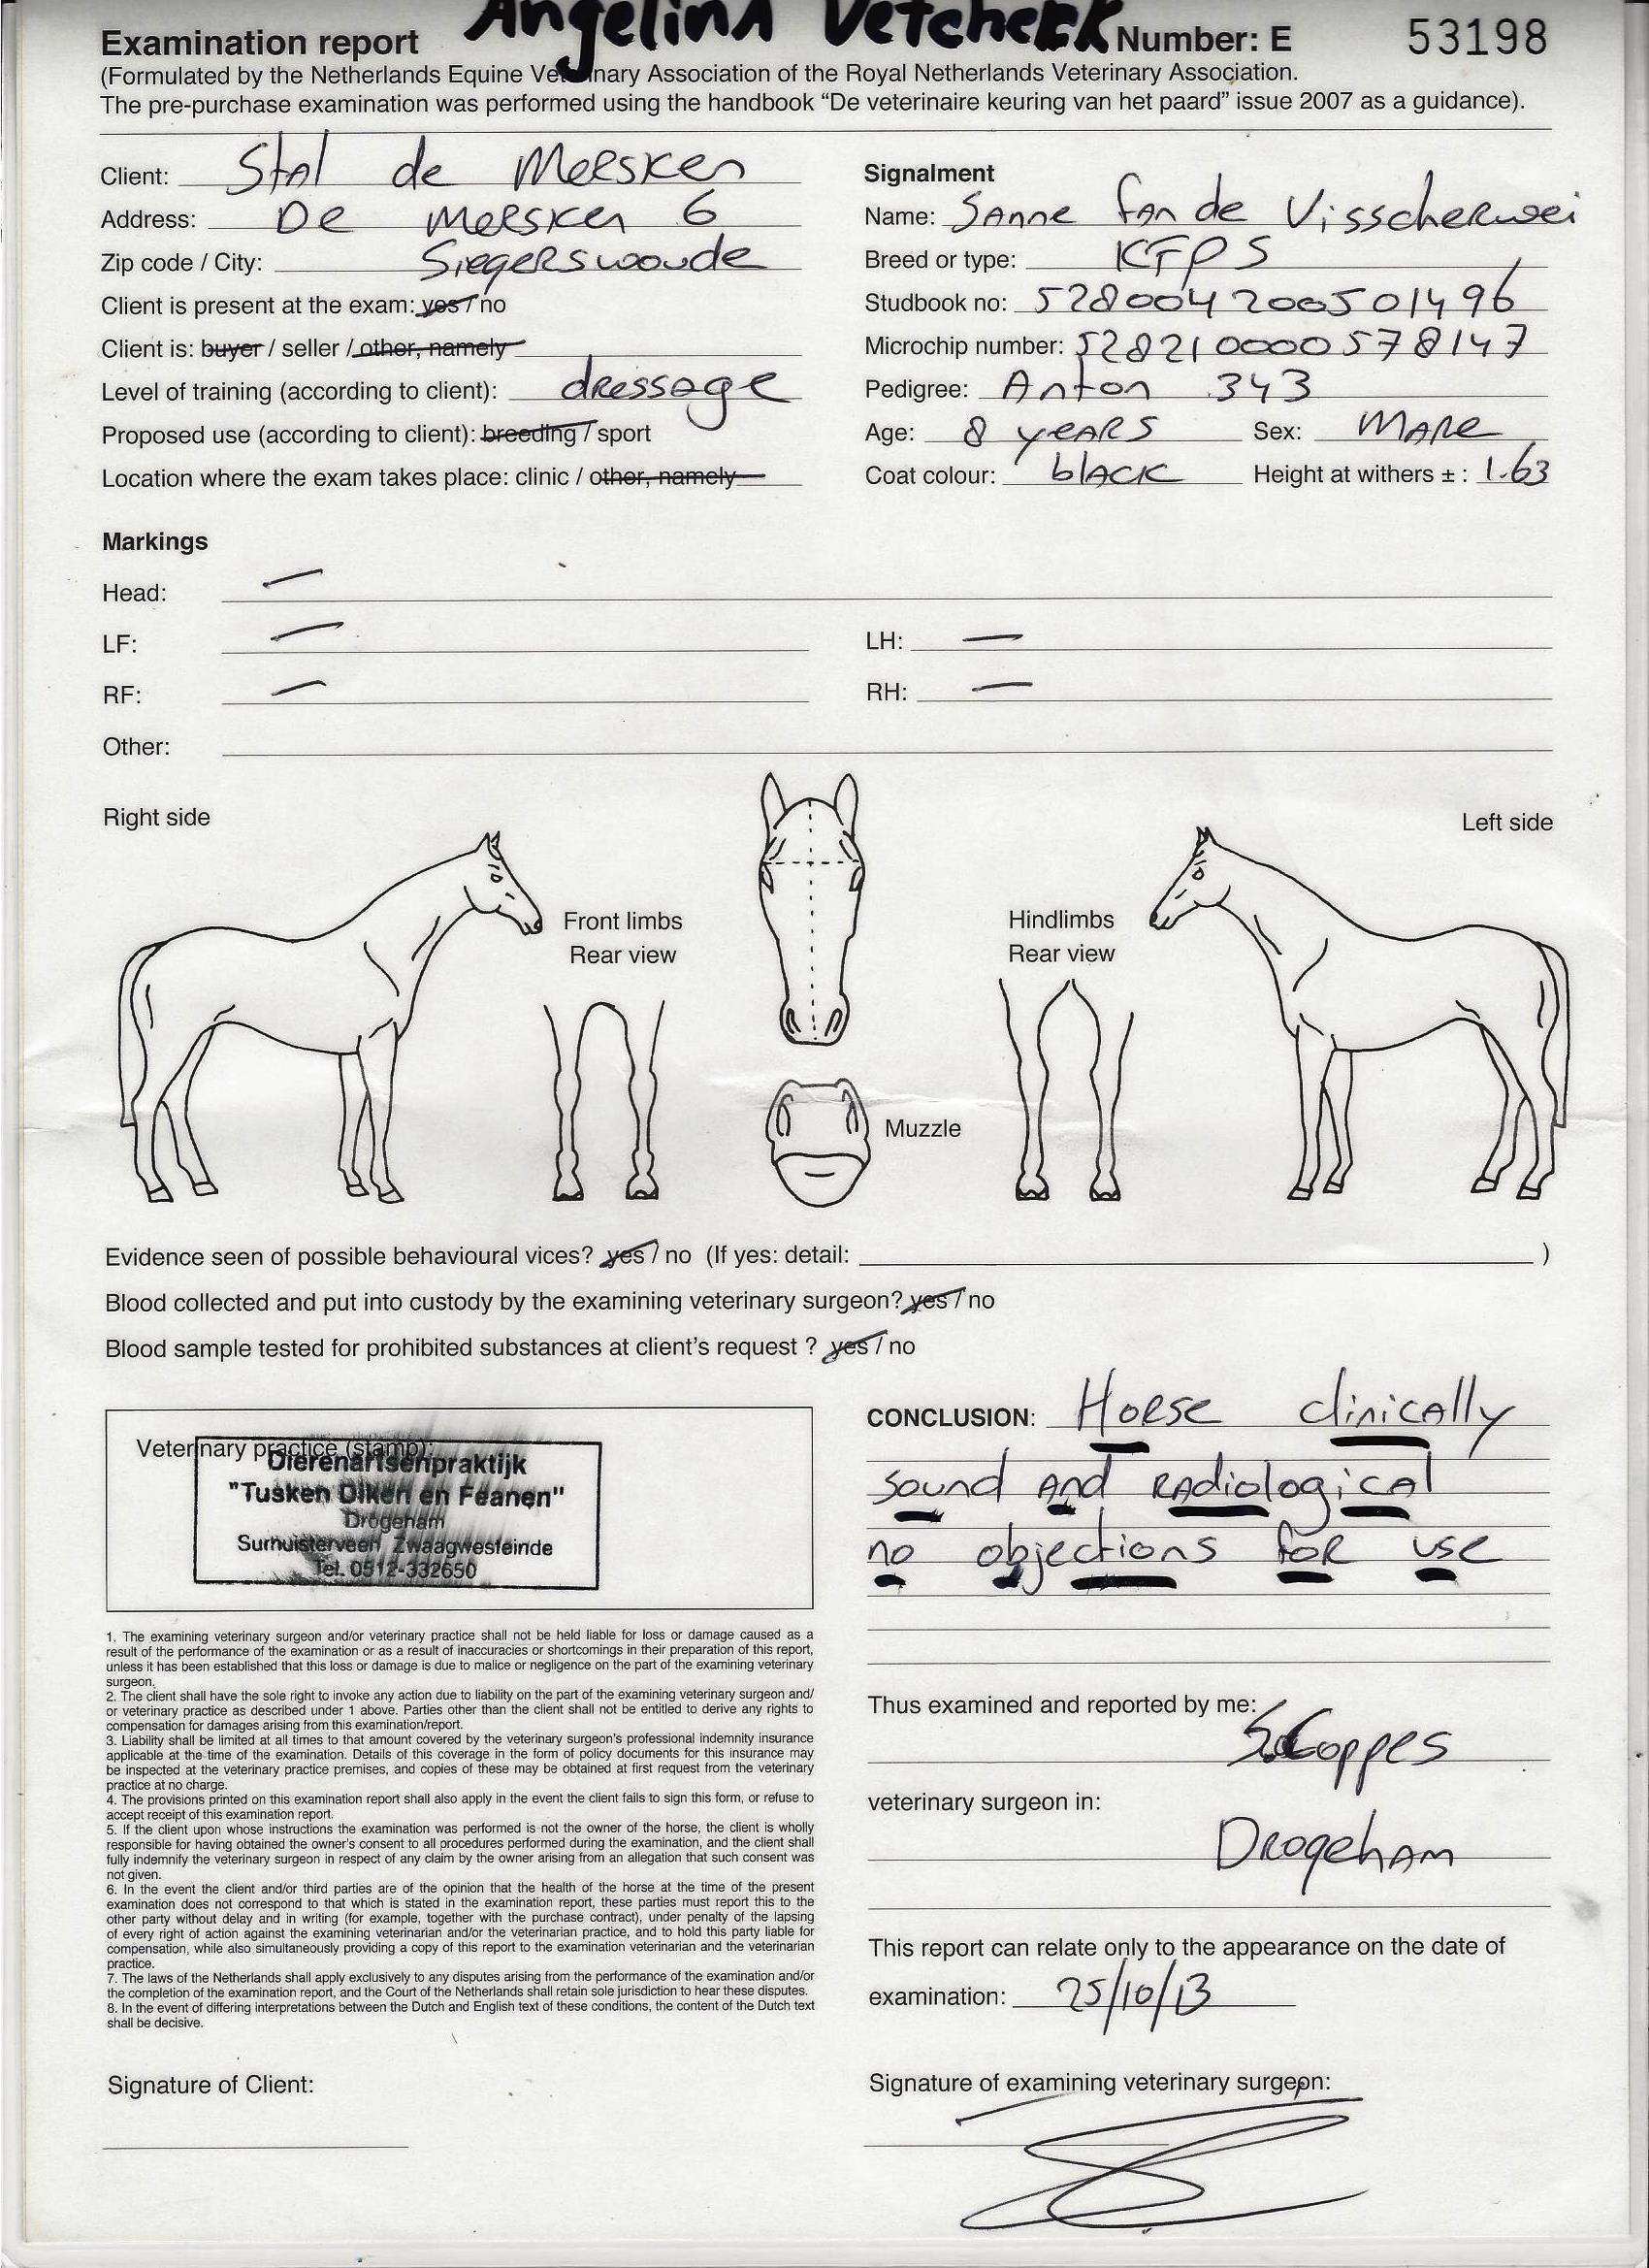 Angelina Vetcheck
Examination report Number: E 53198
(Formulated by the Netherlands Equine Veterinary Association of the Royal Netherlands Veterinary Association.
The pre-purchase examination was performed using the handbook “De veterinaire keuring van het paard” issue 2007 as a guidance).
Client: Stal de Mersken
Address: De Mersken 6
Zip code / City: Siegerswoude
Client is present at the exam: yes / no
Client is: buyer / seller / other, namely
Level of training (according to client): dressage
Proposed use (according to client): breeding / sport
Location where the exam takes place: clinic / other, namely
Signalment
Name: Sanne fan de Visscherwei
Breed or type: KFPS
Studbook no: 528004200501496
Microchip number: 528210000578147
Pedigree: Anton 343
Age: 8 years Sex: Mare
Coat colour: black Height at withers ± : 1.63
Markings
Head: —
LF: — LH: —
RF: — RH: —
Other:
Right side
Left side
Front limbs
Rear view
Hindlimbs
Rear view
Muzzle
Evidence seen of possible behavioural vices? yes / no (If yes: detail: )
Blood collected and put into custody by the examining veterinary surgeon? yes / no
Blood sample tested for prohibited substances at client's request ? yes / no
Veterinary practice (stamp):
Dierenartsenpraktijk
"Tusken Diken en Feanen"
Drogeham
Surhuisterveen Zwaagwesteinde
Tel. 0512-332650
CONCLUSION: Horse clinically
sound and radiological
no objections for use
1. The examining veterinary surgeon and/or veterinary practice shall not be held liable for loss or damage caused as a
result of the performance of the examination or as a result of inaccuracies or shortcomings in their preparation of this report,
unless it has been established that this loss or damage is due to malice or negligence on the part of the examining veterinary
surgeon.
2. The client shall have the sole right to invoke any action due to liability on the part of the examining veterinary surgeon and/
or veterinary practice as described under 1 above. Parties other than the client shall not be entitled to derive any rights to
compensation for damages arising from this examination/report.
3. Liability shall be limited at all times to that amount covered by the veterinary surgeon's professional indemnity insurance
applicable at the time of the examination. Details of this coverage in the form of policy documents for this insurance may
be inspected at the veterinary practice premises, and copies of these may be obtained at first request from the veterinary
practice at no charge.
4. The provisions printed on this examination report shall also apply in the event the client fails to sign this form, or refuse to
accept receipt of this examination report.
5. If the client upon whose instructions the examination was performed is not the owner of the horse, the client is wholly
responsible for having obtained the owner's consent to all procedures performed during the examination, and the client shall
fully indemnify the veterinary surgeon in respect of any claim by the owner arising from an allegation that such consent was
not given.
6. In the event the client and/or third parties are of the opinion that the health of the horse at the time of the present
examination does not correspond to that which is stated in the examination report, these parties must report this to the
other party without delay and in writing (for example, together with the purchase contract), under penalty of the lapsing
of every right of action against the examining veterinarian and/or the veterinarian practice, and to hold this party liable for
compensation, while also simultaneously providing a copy of this report to the examination veterinarian and the veterinarian
practice.
7. The laws of the Netherlands shall apply exclusively to any disputes arising from the performance of the examination and/or
the completion of the examination report, and the Court of the Netherlands shall retain sole jurisdiction to hear these disputes.
8. In the event of differing interpretations between the Dutch and English text of these conditions, the content of the Dutch text
shall be decisive.
Thus examined and reported by me:
S. Coppes
veterinary surgeon in:
Drogeham
This report can relate only to the appearance on the date of
examination: 25/10/13
Signature of Client:
Signature of examining veterinary surgeon: